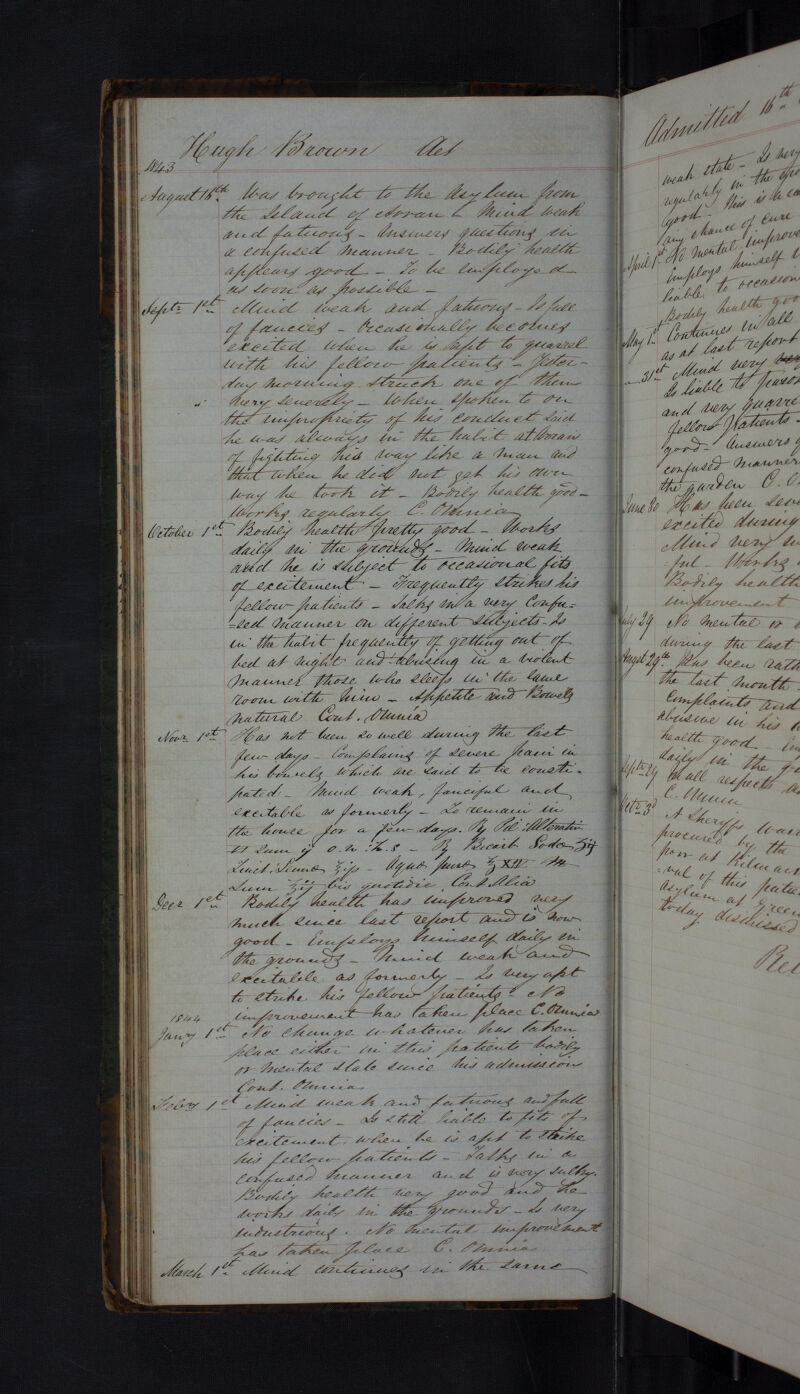 Hugh Brown Aet
1843
August 16th Was brought to the Asylum from
the Island of Arran - Mind weak
and fatuous - Answers questions in
a confused manner - Bodily health
appears good - To be employed
as soon as possible -
Septr 1st Mind weak and fatuous - Is full
of fancies - Occasionally becomes
excited when he is apt to quarrel
with his fellow patients - Yester-
day morning struck one of them
very severely - When spoken to on
the impropriety of his conduct said
he was always in the habit at
of fighting his way like a man and
that when he did not get his own
way he took it - Bodily health good -
Works regularly C. Omnia
October 1st Bodily health pretty good - Works
daily in the grounds - Mind weak
and he is subject to occasional fits
of excitement - Frequently strikes his
fellow patients - Talks in a very confu=
=sed manner on different subjects - Is
in the habit frequently of getting out of
bed at night and abusing in a violent
manner those who sleep in the same
room with him - Appetite and Bowels
natural Cont. Omnia
Novr 1st Has not been so well during the last
few days - Complains of severe pain in
his bowels which are said to be consti-
pated - Mind weak, fanciful and
excitable as formerly - To remain in
the house for a few days. Rx Pil: Alterativ
Sum ij o.n. H.S - Rx Bicarb Soda
Tinct: Senna Aqua pura M
Sum bis quotidie Cont Alia
Decr 1st Bodily health has improved very
much since last report and is now
good - Employs himself daily in
the grounds - Mind weak and
excitable as formerly - Is very apt
to strike his fellow patients - No
improvement has taken place C. Omnia
1844
Jany 1st No change whatever has taken
place either in this patients bodily
or mental state since his admission
Cont. Omnia
Feby 1st Mind weak and fatuous and full
of fancies - Is still liable to fits of
excitement when he is apt to strike
his fellow patients - Talks in a
confused manner and is very sulky.
Bodily health very good and he
works daily in the grounds - Is very
industrious. No mental improvement
has taken place C. Omnia
March 1st Mind continues in the same
Admitted 16th
weak state - Is very
regularly in the
good - This is a
any chance of cure
April 1st No mental improve
Employs himself
liable to occasion
Bodily health goo
May 1st Continues in all
as at last report
" 31st Mind very
Is liable to
and very quarre
fellow patients -
good - Answers
confused manner
the garden C. O
June 30 Has been
excited during
Mind very
Works
Bodily health
improvement
July 29 No mental or
during the last
August 29th Has been rath
the last month -
Complaints and
abusive in his
health good -
daily in the
Septr 29 In all respects
C. Omnia
Octr 3d A Sheriffs
procured by the
=val of this patie
asylum at Green
today dismissed